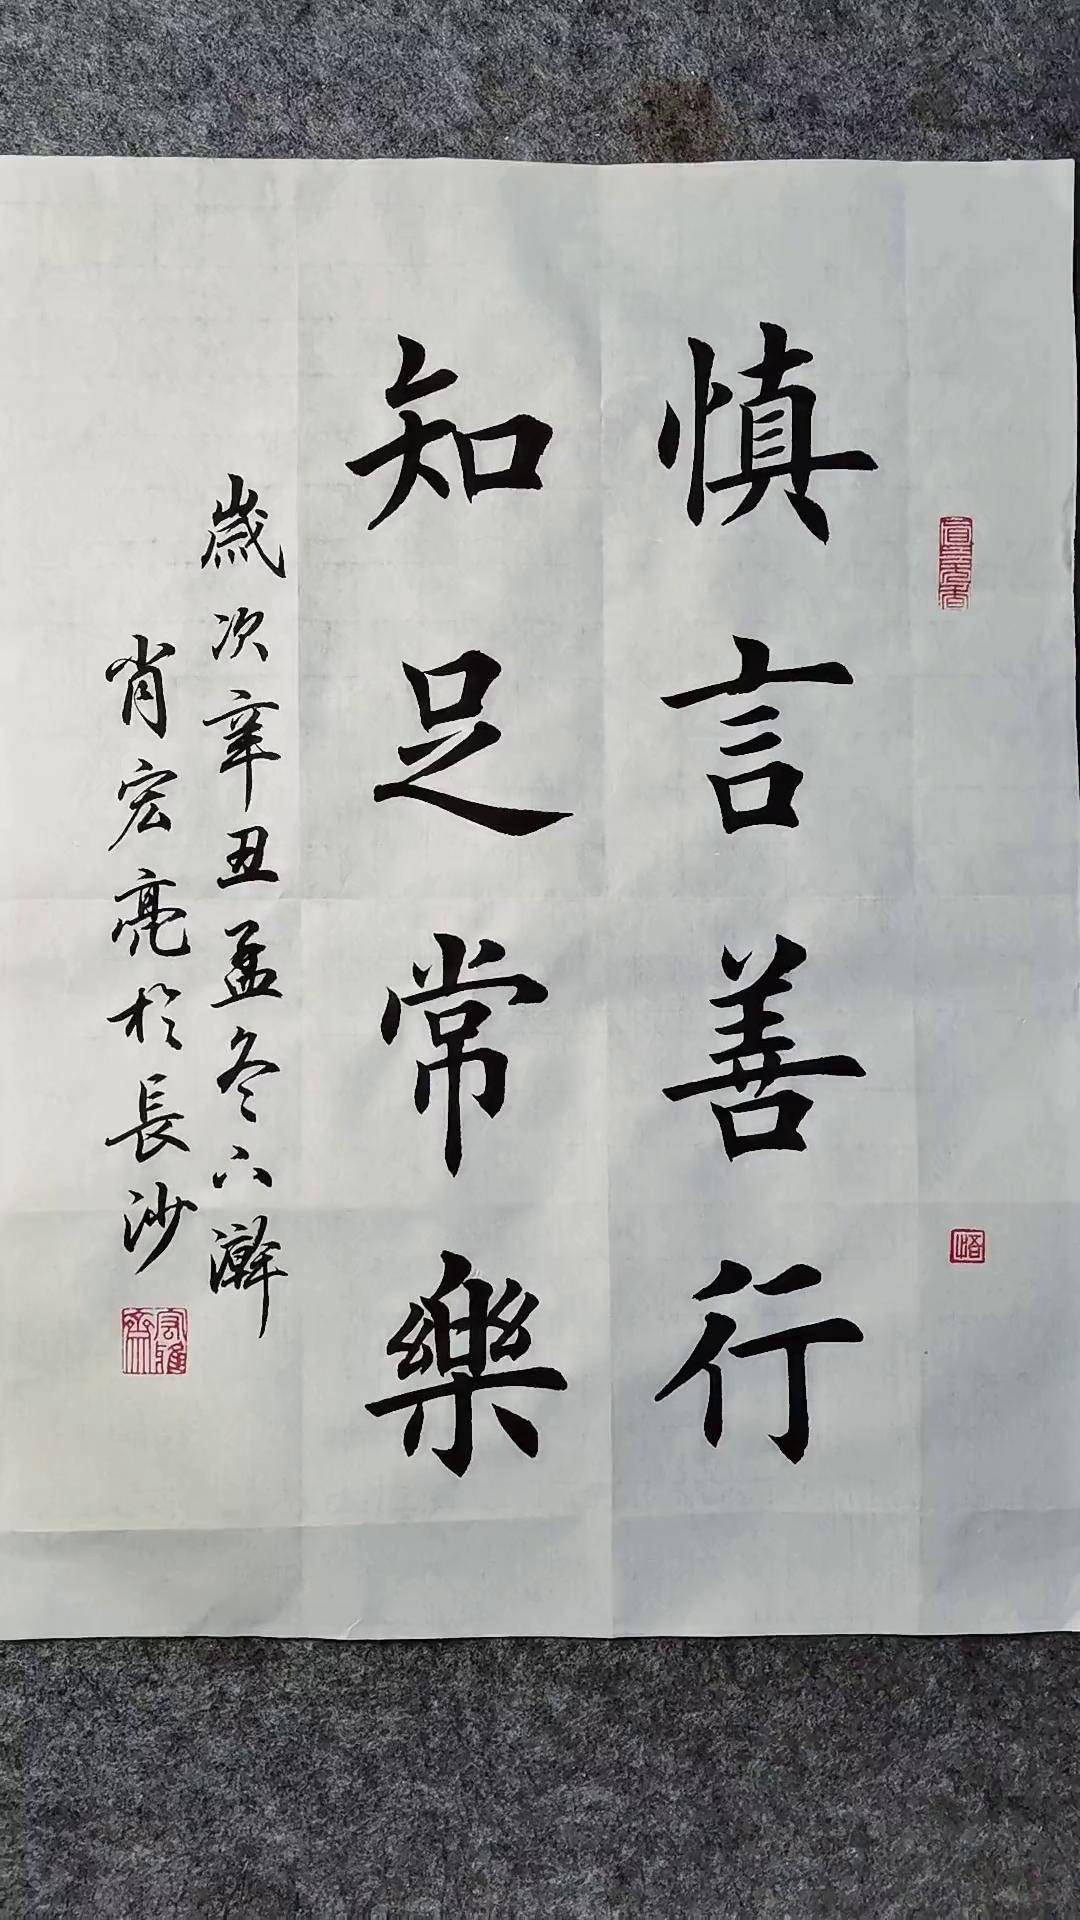 慎言善行
知足常樂
歲次辛丑孟冬下澣
肖宏亮於長沙
宏雅齋